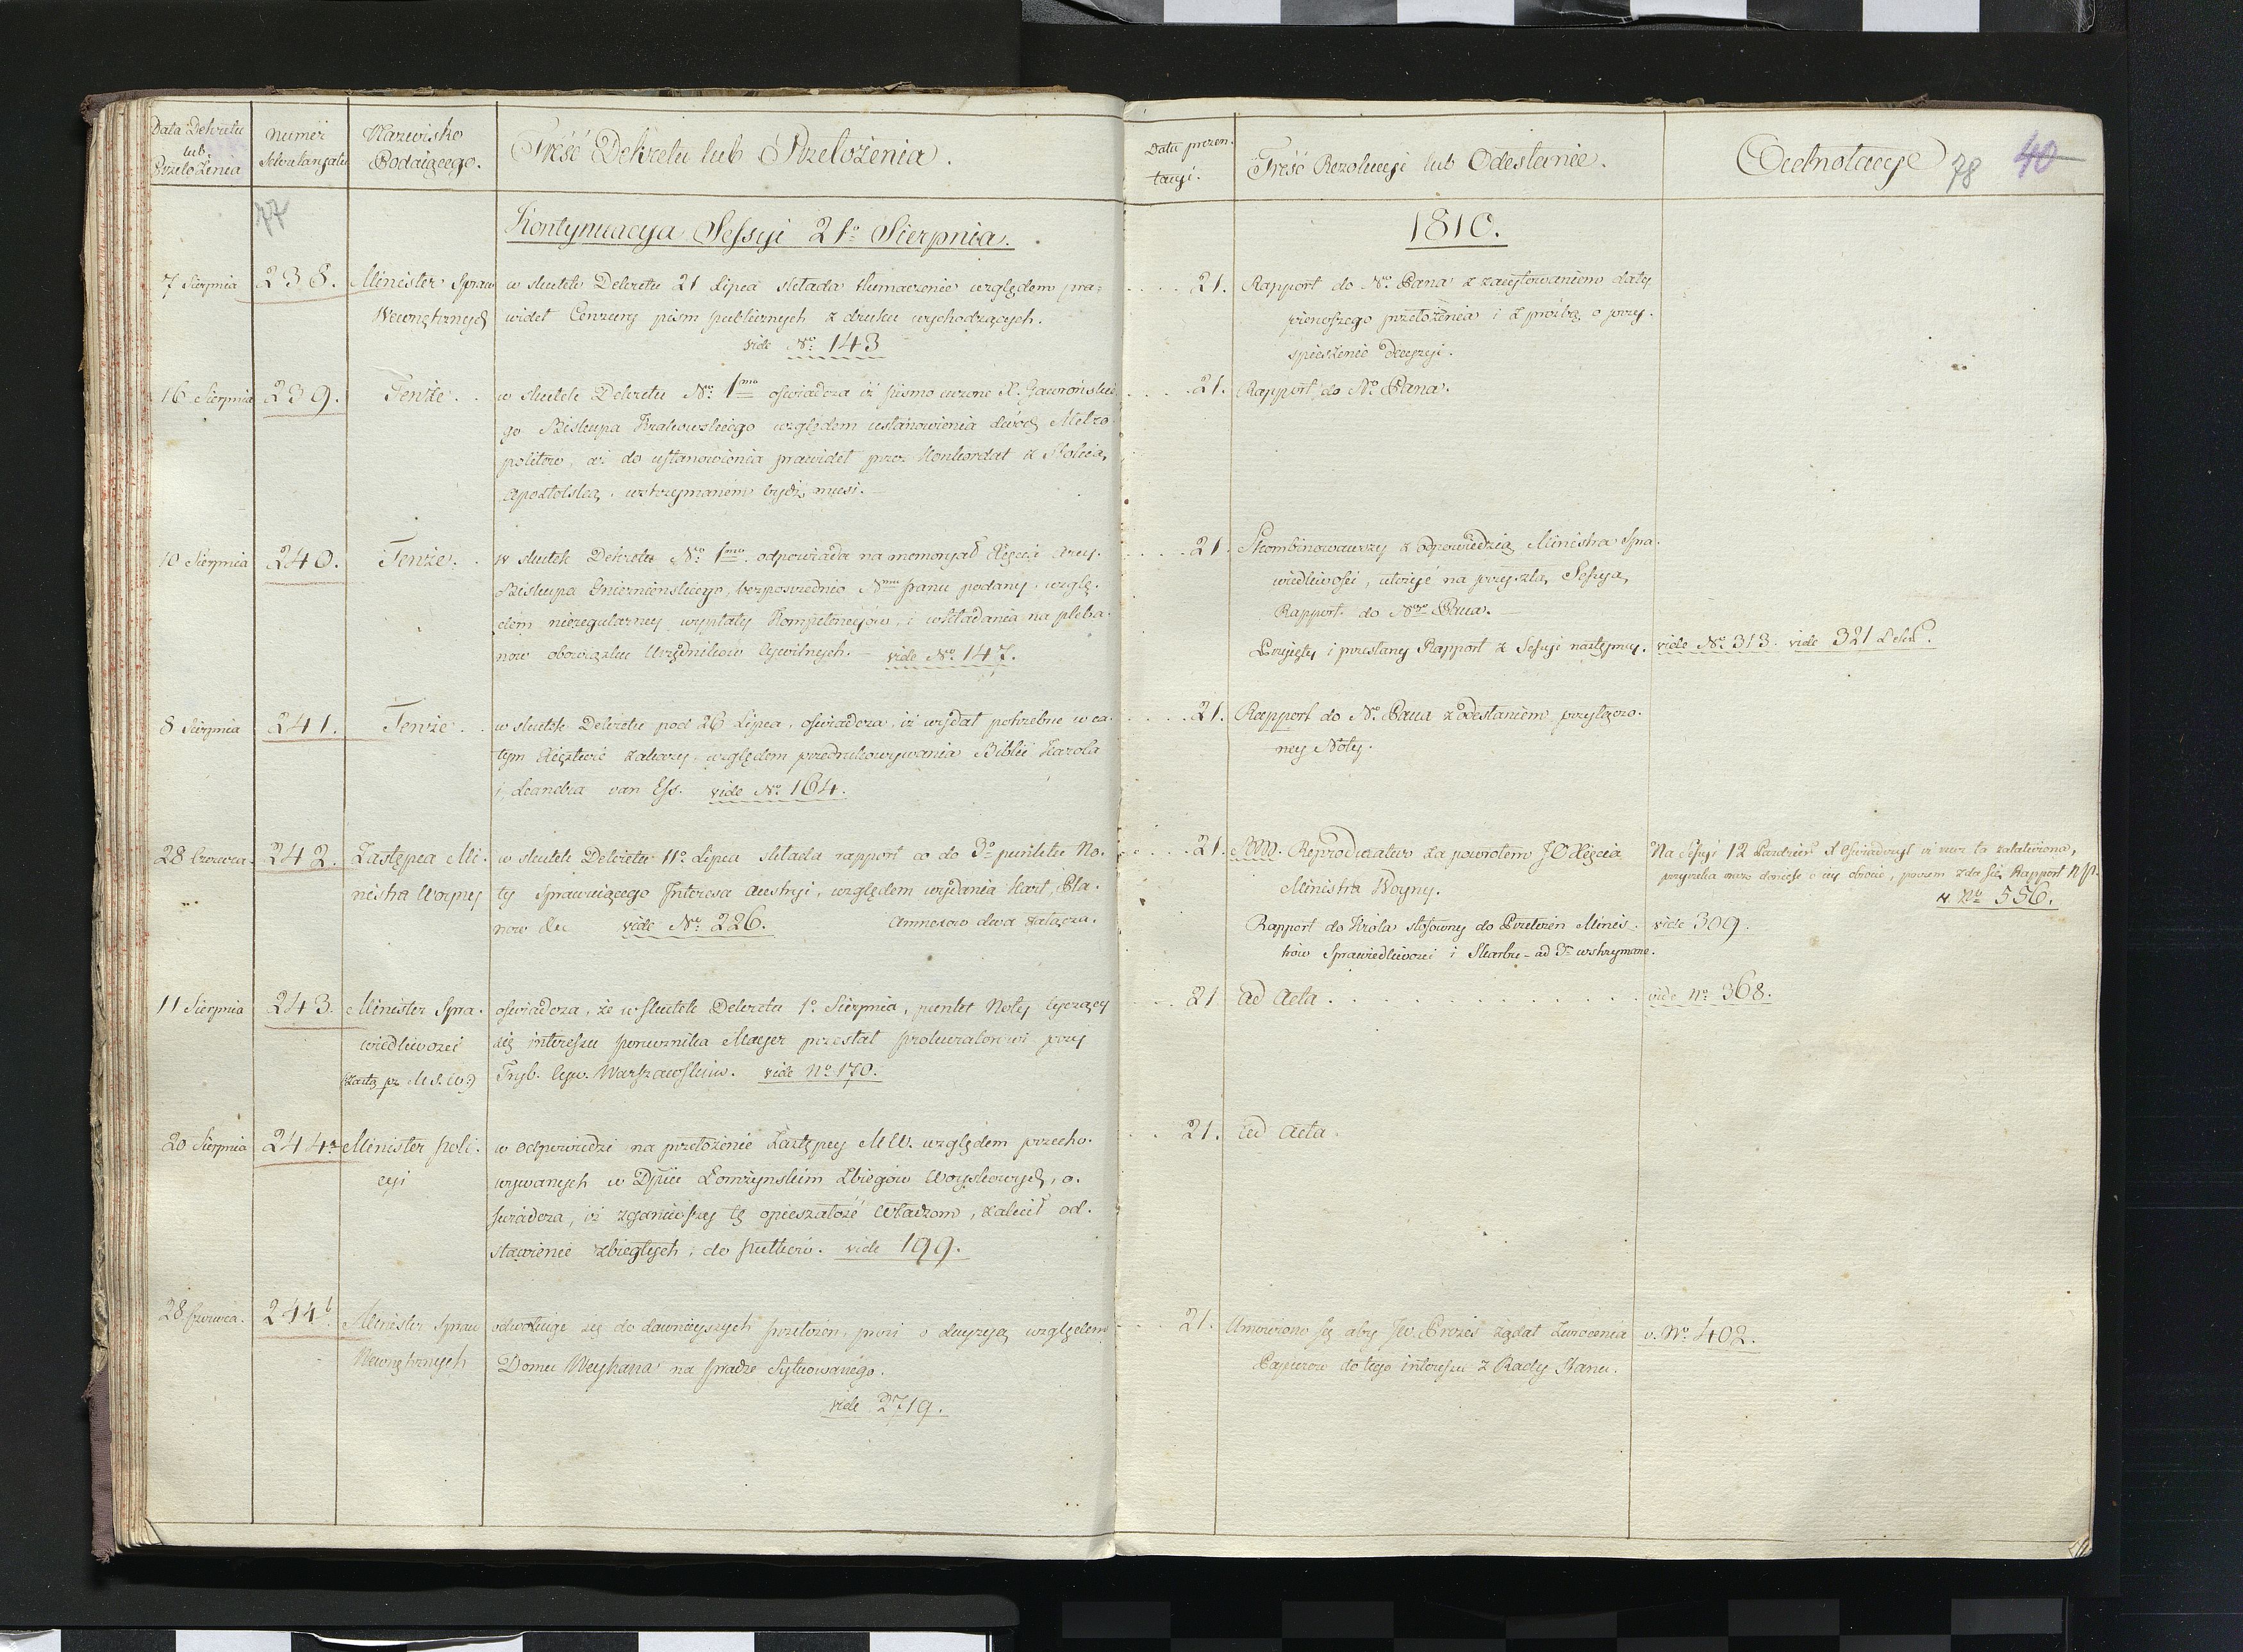 Data Dekretu
lub
Przełożenia
Numer
Sekretaryatu
Nazwisko
Podaiącego.
Treść Dekretu lub Przełożenia.
77
Kontynuacya Sessyi 21º Sierpnia.
7 Sierpnia
238.
Minister Spraw
Wewnętrznych
w skutek Dekretu 21 Lipca składa tłumaczenie względem pra-
wideł Cenzury pism publicznych z druku wychodzących.
vide Nº 143
16 Sierpnia
239.
Tenże . .
w skutek Dekretu Nº 1mo oświadcza iż pismo wzene X. Gawrońskie
go Biskupa Krakowskiego względem ustanowienia dwóch Metro
politów, aż do ustanowienia prawideł przez Konkordat z Stolicą
Apostolską, wstrzymanem bydź musi. —
10 Sierpnia
240.
Tenże. .
w skutek Dekretu Nº 1mo odpowiada na memoryał Xięcia Arcy-
Biskupa Gnieznienskiego, bezposrednio Nmu panu podany, wzglę-
dem nieregularney wypłaty Kompetencyów, i wkładania na pleba-
now obowiązku Urzędnikow Cywilnych. — vide Nº 147.
8 Sierpnia
241.
Tenże . .
w skutek Dekretu pod 26 Lipca, oświadcza, iż wydał potrzebne w ca-
łym Xięztwie zakazy, względem przedrukowywania Biblii Karola
i Leandra van Ess. vide Nº 164.
28 Czerwca.
242.
Zastępca Mi-
nistra Woyny
w skutek Dekretu 11º Lipca składa rapport co do 3º punktu No-
ty sprawuiącego Interesa Austryi, względem wydania Kart, Pla-
now &c vide Nº 226. Annexow dwa załącza.
11 Sierpnia
243.
Minister Spra-
wiedliwosci
(Zastę. pr. M. S. W.)
oświadcza, że w Skutek Dekretu 1º Sierpnia, punkt Noty tyczący
się interessu porucznika Mayer przesłał prokuratorowi przy
Tryb. Cyw. Warszawskim. vide Nº 170.
20 Sierpnia
244a
Minister poli-
cyi
w odpowiedzi na przełożenie Zastępcy MW. względem przecho-
wywanych w Dpcie Łomżyńskim Zbiegów Woyskowych, o-
świadcza, iż zganiwszy tę opieszałość Władzom, zalecił od-
stawienie zbiegłych, do pułków. vide 199.
28 Czerwca.
244b
Minister Spraw
Wewnętrznych
odwołuie się do dawnieyszych przełożeń, prosi o decyzyą względem
Domu Weyhana na pradze Sytuowanego.
vide 2719.
Data prezen-
tacyi.
Treść Rezolucyi lub Odesłanie.
Adnotacye
78
40
1810.
. . . . 21.
Rapport do Nº Pana z zacytowaniem daty
pierwszego przełożenia i z prośbą o przy-
spieszenie decyzyi.
. . . . 21.
Rapport do Nº Pana.
. . . . 21
Skombinowawszy z odpowiedzią Ministra Spra-
wiedliwości, ułożyć na przyszłą Sessyą
Rapport do Ngo Pana. —
Przyięty i przesłany Rapport z Sessyi następney.
vide Nº 313. vide 321
. . . . 21.
Rapport do Nº Pana z odesłaniem przyłączo-
ney Noty.
. . . . 21.
NW. Reproducatur za powrotem JO Xięcia
Ministra Woyny.
Rapport do Króla stosowny do Przełożeń Minis-
trów Sprawiedliwosci i Skarbu - ad 3º wstrzymane.
Na Sessyi 12 Października X Oświadczył iż rzecz ta załatwiona,
przyrzekł oraz doniesć o iey obrocie, poczem zda się Rapport NP.
v Nº 556.
vide 309.
. . . 21
ad Acta . . . . . . . . . .
vide Nº 368.
. . . 21.
ad Acta.
. . . 21.
Umówiono się aby JW. Prezes żądał zwrócenia
Papierow do tego interessu z Rady Stanu.
v. Nº 402.